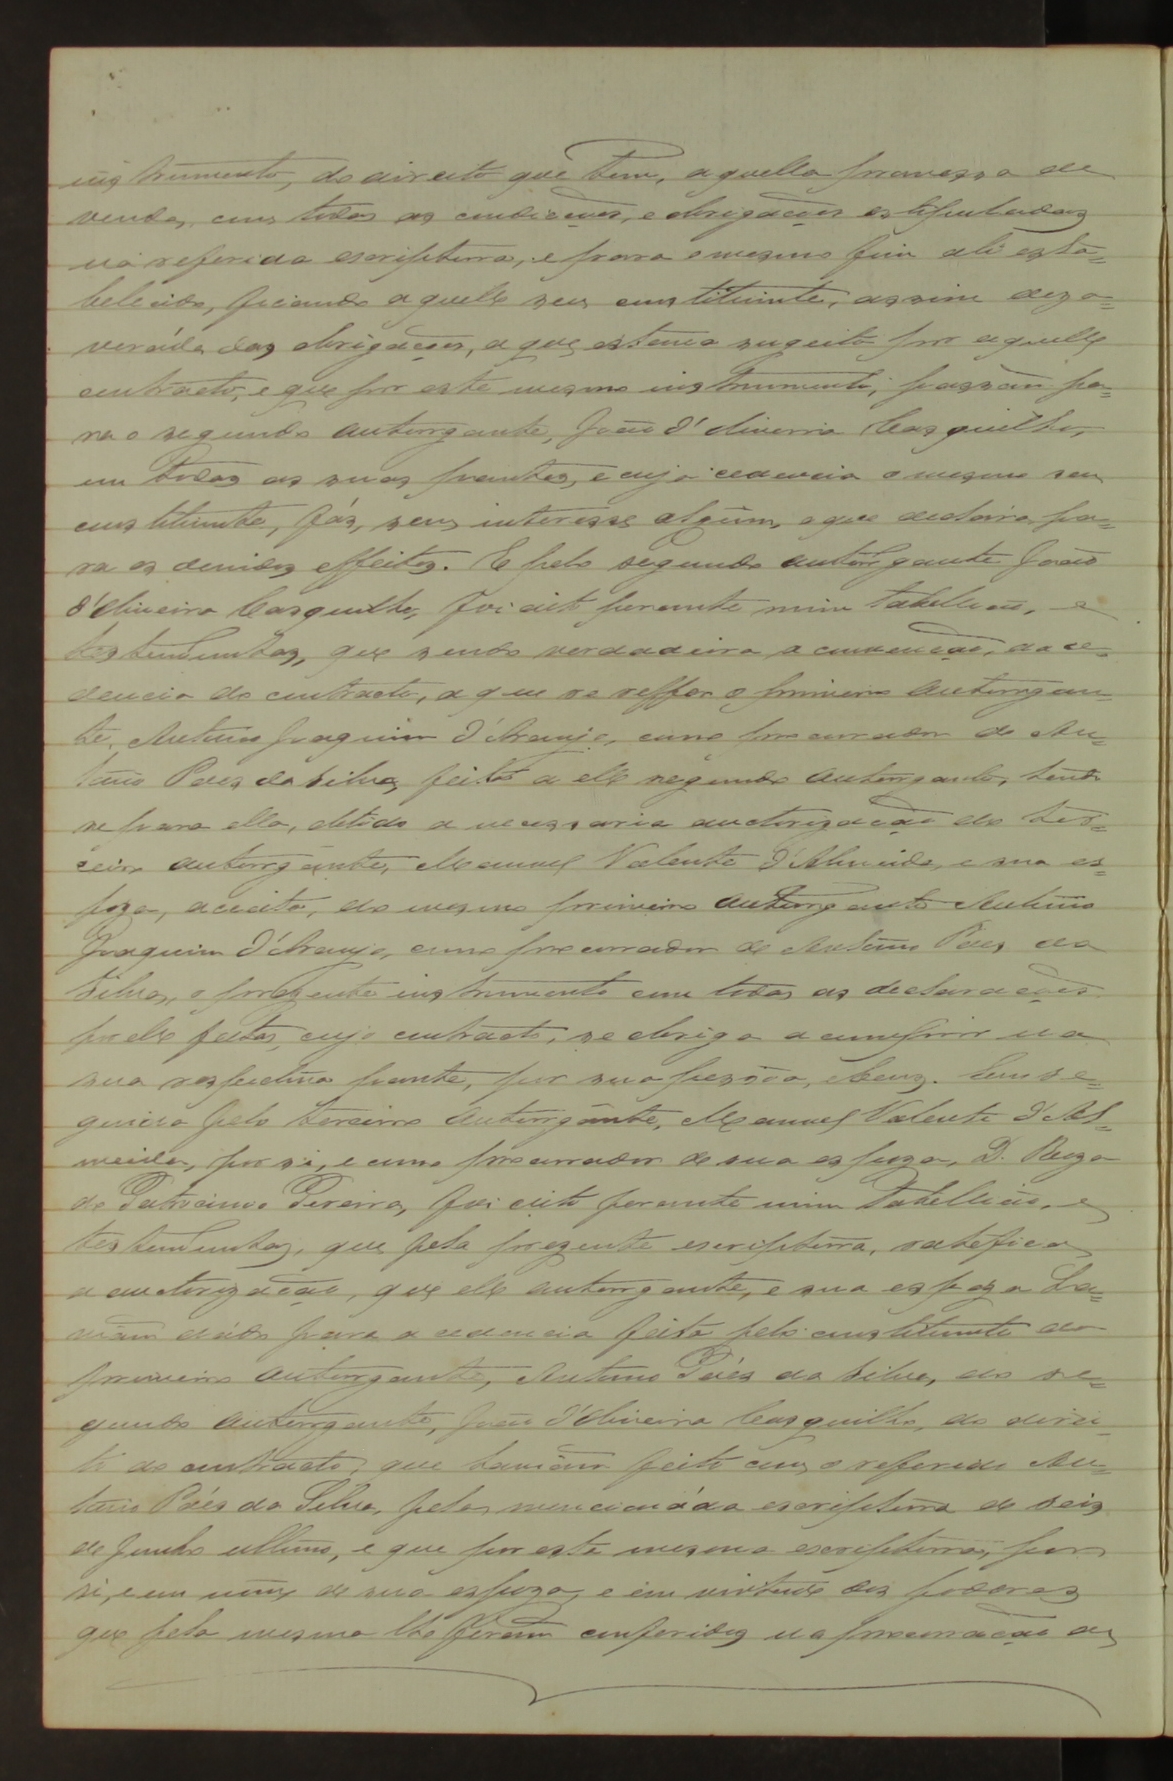 instrumento, do direito que tem, aquella promessa de
venda, com todas as condicções, e obrigações estipuladas
na referida escriptura, e para o mesmo fim ali esta=
belecido, ficando aquelle seu constituinte, assim dezo=
nerádo das obrigações, a que estava sugeito por aquelle
contracto, e que por este mesmo instrumento, passão pa=
ra o segundo autorgante, João d'Oliveira Casquilho,
em todas as suas partes, e cuja cedencia o mesmo seu
constituinte, fáz, sem interesse algum, o que declara pa=
ra os devidos effeitos. E pelo segundo autorgante João
d'Oliveira Casquilho, foi dito perante mim Tabellião, e
testemunhas, que sendo verdadeira a convenção, da ce=
dencia do contracto, a que se reffere o primeiro autorgan=
te, Antonio Joaquim d'Araujo, como procurador de An=
tonio Paes da Silva, feita a elle segundo autorgante, tendo
se para ella, obtido a necessaria auctorização do ter=
ceiro autorgante, Manuel Valente d'Almeida, e sua es=
poza, acceita, do mesmo primeiro autorgante Antonio
Joaquim d'Araujo, como procurador de Antonio Paes da
Silva, o prezente instrumento com todas as declarações
por elle feitas, cujo contracto, se obriga a cumprir na
sua respectiva parte, por sua pessôa, e bens. Em se=
guida pelo terceiro autorgante, Manuel Valente d'Al=
meida, por si, e como procurador de sua espoza, D. Roza
do Patrocinio Pereira, foi dito perante mim Tabellião, e
testemunhas, que pela prezente escriptura, ratefica
a auctorização, que elle autorgante, e sua espoza ha=
viam dádo para a cedencia feita pelo constituinte do
primeiro autorgante, Antonio Páes da Silva, ao se=
gundo autorgante, João d'Oliveira Casquilho, do direi=
to do contracto, que haviam feito com o referido An=
tonio Páes da Silva, pela mencionáda escriptura de seis
de Junho ultimo, e que por esta mesma escriptura, por
si, e em nome de sua espoza, e em virtude dos poderes
que pela mesma lhe foram conferidos na procuração de